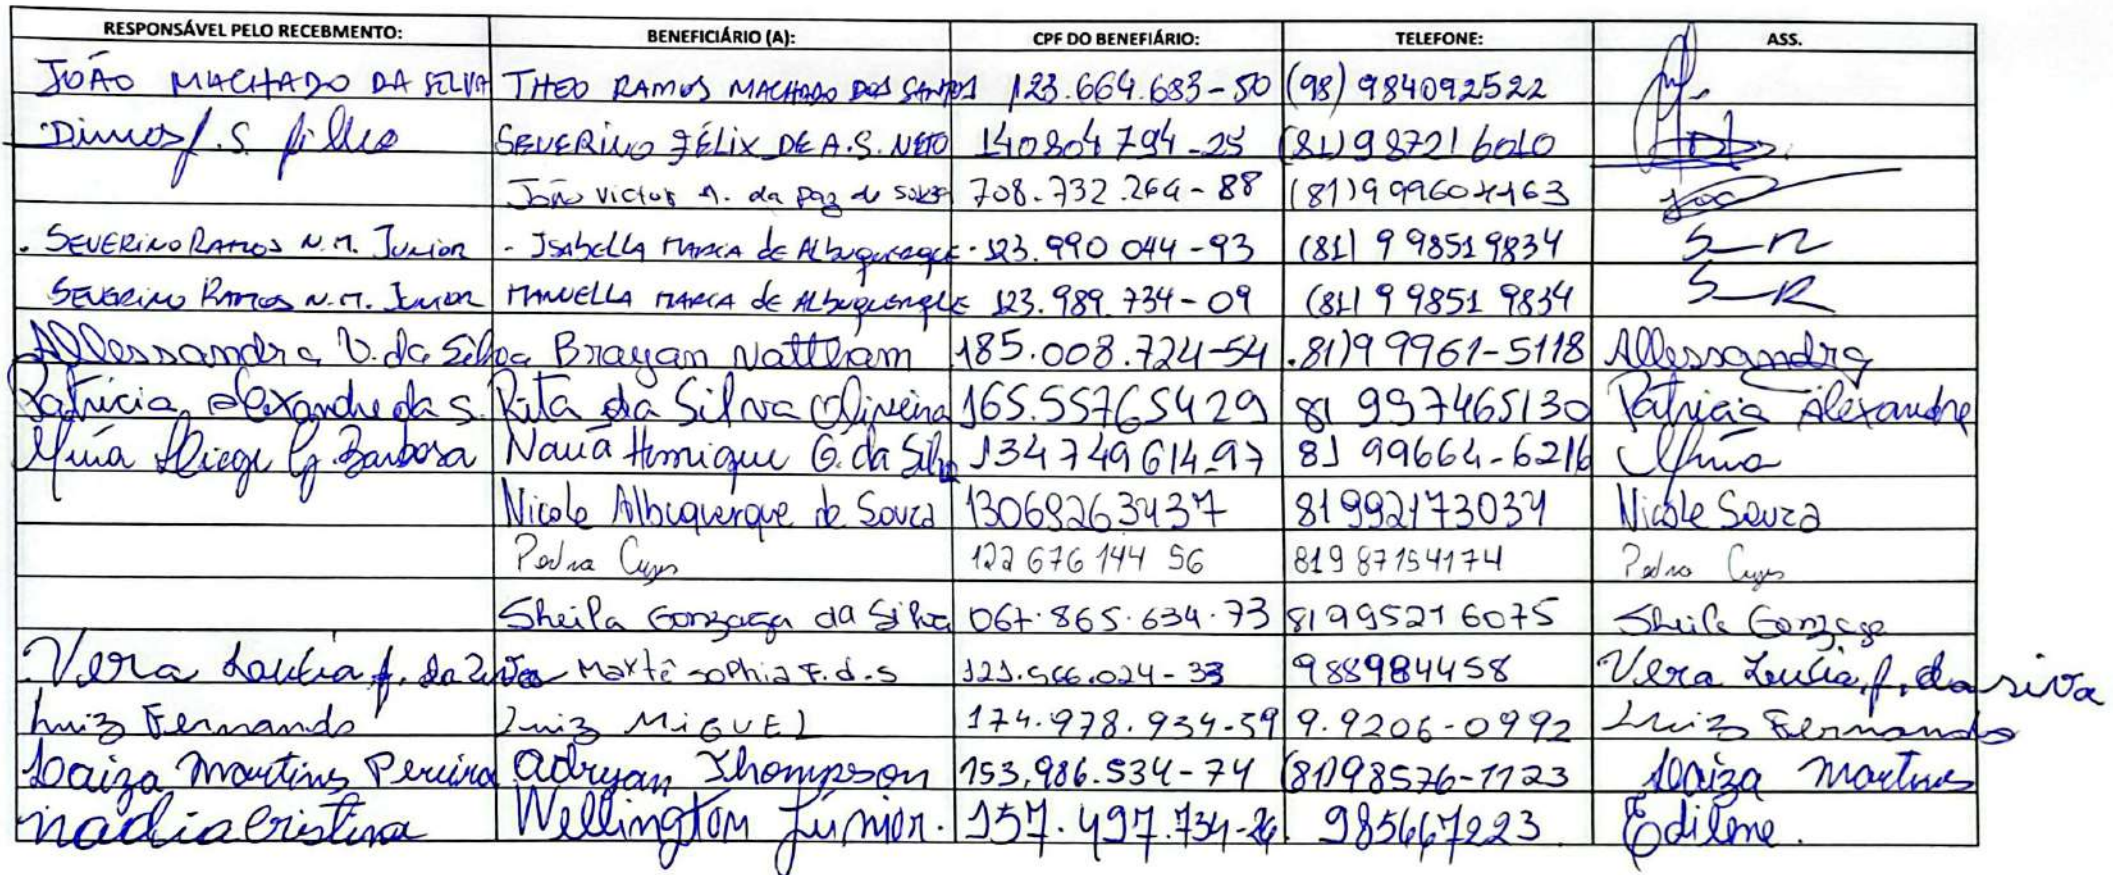 RESPONSÁVEL PELO RECEBMENTO: BENEFICIÁRIO (A): CPF DO BENEFIÁRIO: TELEFONE: ASS.
JOÃO MACHADO DA SILVA THEO RAMOS MACHADO DOS SANTOS 123.664.683-50 (98) 984092522
S. filho SEVERINO FÉLIX DE A.S. NETO 140804794-25 (81)987216010
João Victor A. da Paz de Souza 708.732.264-88 (81)999604463
. SEVERINO RAMOS N.M. JUNIOR - ISABELLA MARIA de Albuquerque - 123.990 044-93 (81) 9 98519834 S-R
SEVERINO RAMOS N.M. JUNIOR MANUELLA MARIA de Albuquerque 123.989.734-09 (81) 9 9851 9834 S-R
Allessandra V. da Silva Brayan Nattham 185.008.724-54 .81)9 9961-5118 Allessandra
Patricia Alexandre da S. Rita da Silva Oliveira 165.55765429 81 997465130 Patricia Alexandre
G. Barbosa Nauã Henrique G. da Silva 134749614-97 81 99664-6216
Nicole Albuquerque de Souza 13069263437 81992173034 Nicole Souza
122 676 144 56 819 87154174
Sheila Gonzaga da Silva 067.865.634.73 81995216075 Sheila Gonzaga
Vera Loucia f. da Maxtê sophia F.d.s 121.566.024-33 988984458 Vera Loucia f. da siva
Luiz Fernando Luiz MIGUEL 174.978.934-59 9.9206-0992 Luiz Fernando
Loaiza Martins Pereira Adryan Thompson 153,986.534-74 (81)98576-1123 Loaiza Martins
nadia cristina Wellington Júnior. 157.497.734-26 985667223 Edilene.